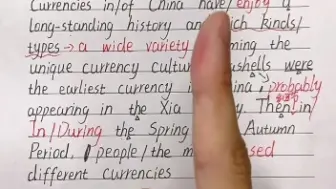 Currencies in/of China have/enjoy a
long-standing history an ich kinds/
types→a wide variety ming the
unique currency cultu shells were
the earliest currency i ina, probably
appearing in the Xia y. Then/in
In/During the Spring Autumn
Period, people/the m sed
different currencies